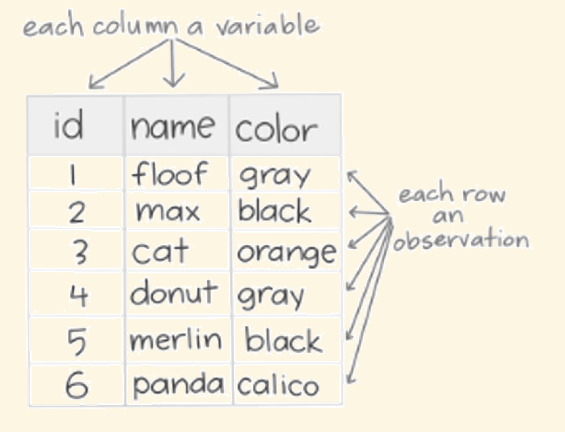 each column a variable
id name color
1 floof gray
2 max black
3 cat orange
4 donut gray
5 merlin black
6 panda calico
each row
an
observation